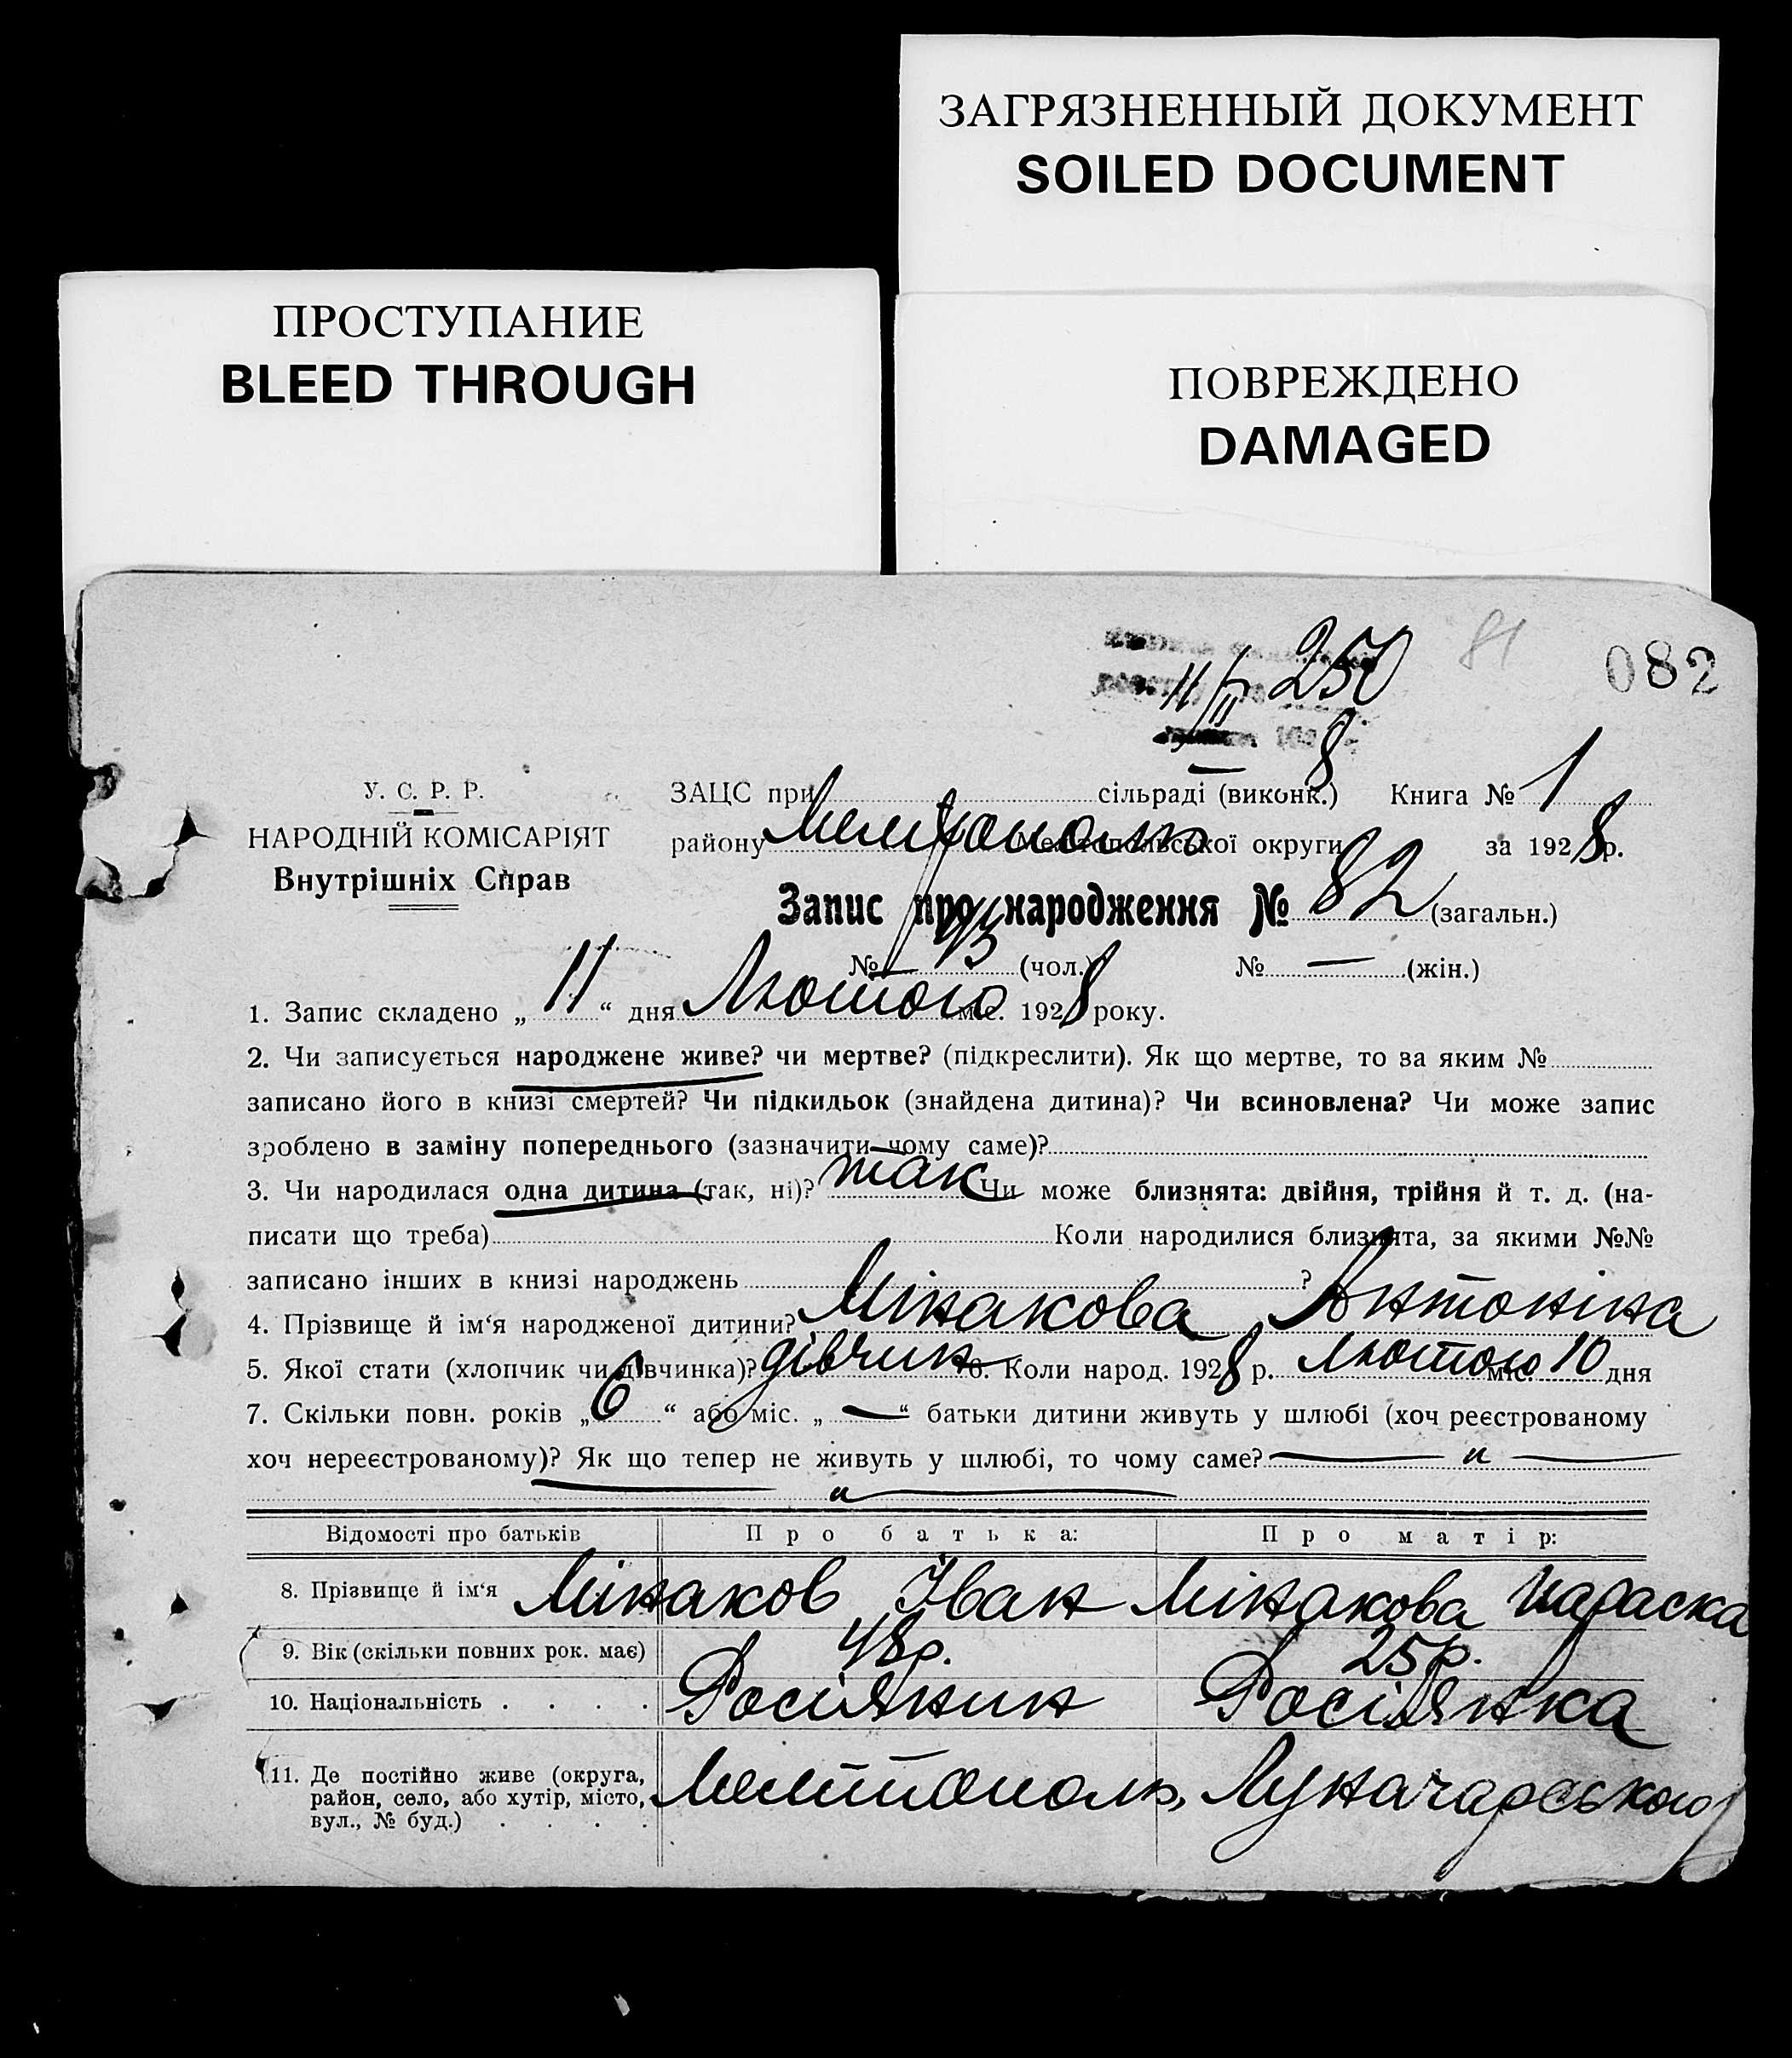 ЗАГРЯЗНЕННЫЙ ДОКУМЕНТ
SOILED DOCUMENT
ПРОСТУПАНИЕ
BLEED THROUGH
ПОВРЕЖДЕНО
DAMAGED
11/II 250 81 082
8
У. С. Р. Р.
НАРОДНІЙ КОМІСАРІЯТ
Внутрішніх Справ
ЗАЦС при сільраді (виконк.) Книга № 1
району Мелітополь Мелітопольської округи за 1928 р.
Запис про народження № 82 (загальн.)
№ (чол.) № — (жін.)
1. Запис складено „ 11 “ дня Лютого міс. 1928 року.
2. Чи записується народжене живе? чи мертве? (підкреслити). Як що мертве, то за яким №
записано його в книзі смертей? Чи підкидьок (знайдена дитина)? Чи всиновлена? Чи може запис
зроблено в заміну попереднього (зазначити чому саме)?
3. Чи народилася одна дитина (так, ні)? так Чи може близнята: двійня, трійня й т. д. (на-
писати що треба) Коли народилися близнята, за якими №№
записано інших в книзі народжень ?
4. Прізвище й ім‘я народженої дитини? Мінакова Антоніна
5. Якої стати (хлопчик чи дівчинка)? дівчик 6. Коли народ. 1928 р. Лютого міс. 10 дня
7. Скільки повн. років „ 6 “ або міс. „ — “ батьки дитини живуть у шлюбі (хоч реєстрованому
хоч нереєстрованому)? Як що тепер не живуть у шлюбі, то чому саме? — „ —
— „ —
Відомості про батьків Про батька: Про матір:
8. Прізвище й ім‘я Мінаков Іван Мінакова Параска
9. Вік (скільки повних рок. має) 48р. 25р.
10. Національність . . . . Росіянин Росіянка
11. Де постійно живе (округа,
район, село, або хутір, місто,
вул., № буд.) . . . . Мелітополь, Луначарського